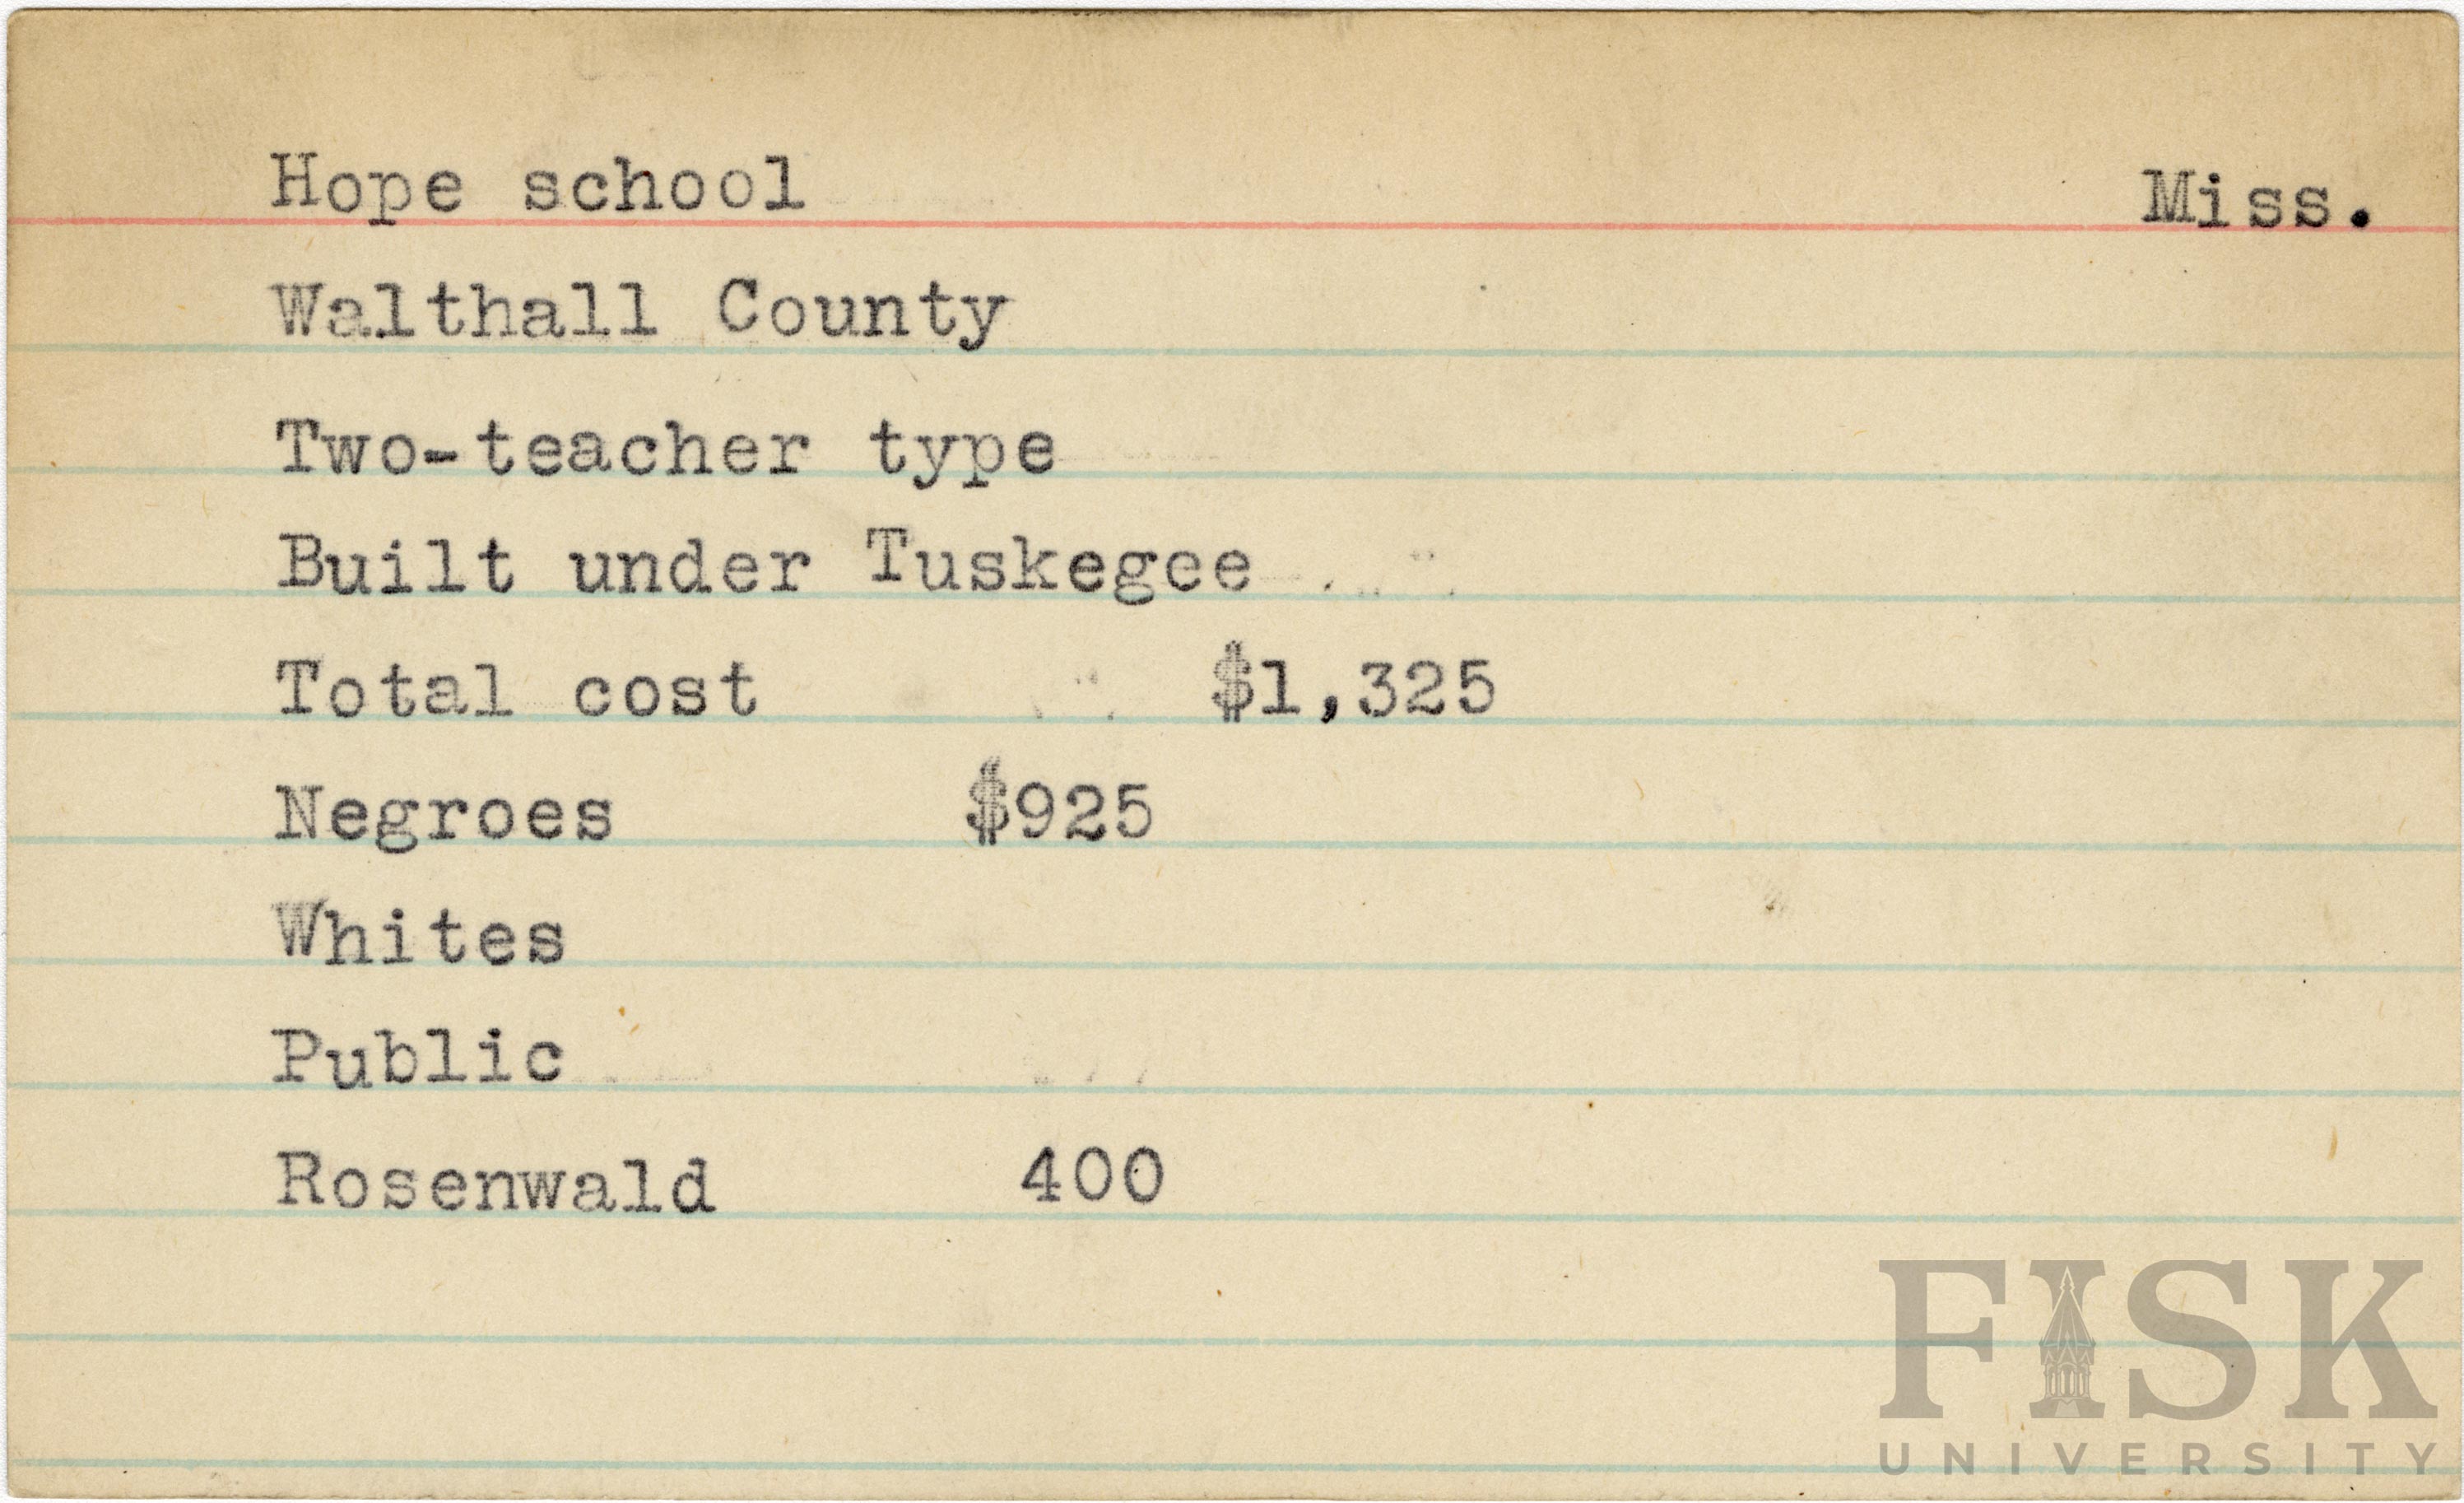 Hope school Miss.
Walthall County
Two-teacher type
Built under Tuskegee
Total cost $1,325
Negroes $925
Whites
Public
Rosenwald 400
FISK
UNIVERSITY